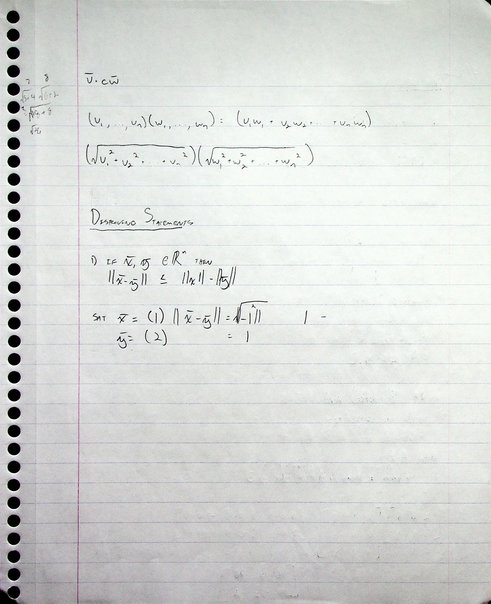 v̄ · cw̄
(v₁, ..., vₙ)(w₁, ..., wₙ) = (v₁w₁ + v₂w₂ + ... + vₙwₙ)
(√v₁² + v₂² + ... + vₙ²)(√w₁² + w₂² + ... + wₙ²)
DISPROVING STATEMENTS
1) IF x̄, ȳ ∈ ℝⁿ THEN
||x̄ - ȳ|| ≤ ||x̄|| - ||ȳ||
SAY x̄ = (1) ||x̄ - ȳ|| = √-1² || 1 -
ȳ = (2) = 1